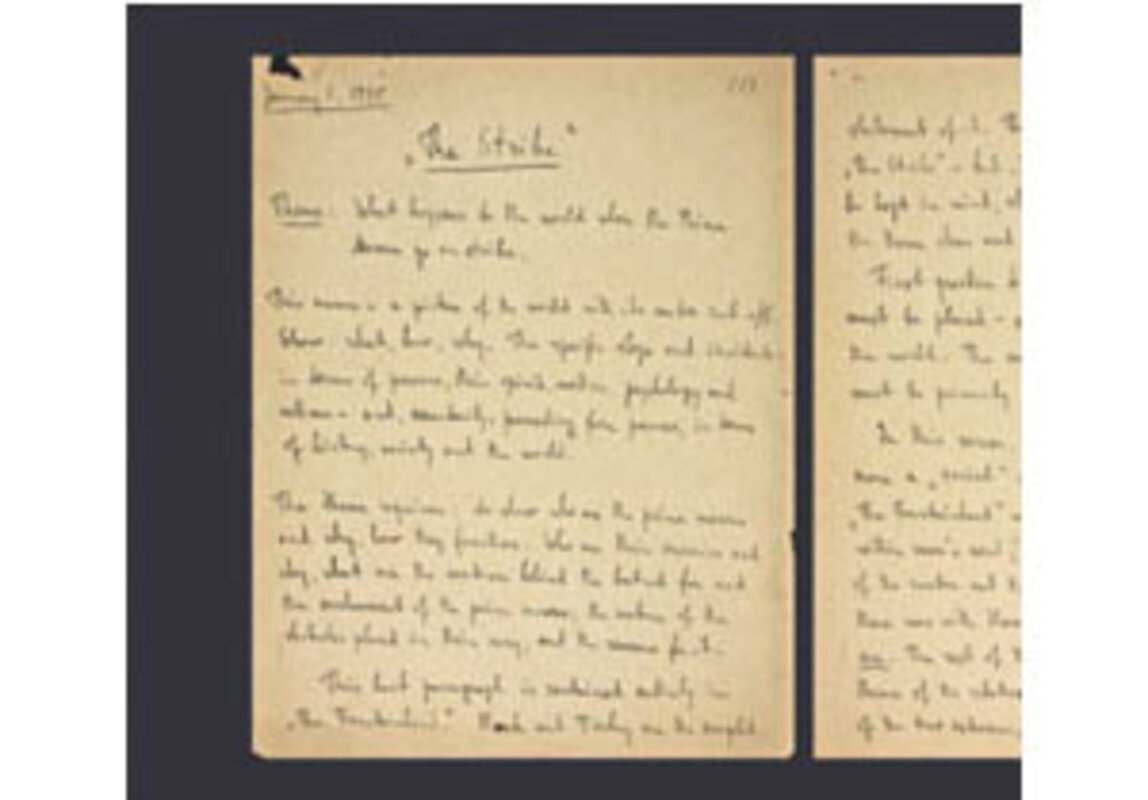 January 1, 1945
„The Strike"
Theme: What happens to the world when the Prime
Movers go on strike.
This means – a picture of the world with its motor cut off.
Show: what, how, why. The specific steps and incidents –
in terms of persons, their spirits, motives, psychology and
actions – and, secondarily, proceeding from persons, in terms
of history, society and the world.
The theme requires: to show who are the prime movers
and why, how they function. Who are their enemies and
why, what are the motives behind the hatred for and
the enslavement of the prime movers; the nature of the
obstacles placed in their way, and the reasons for it.
This last paragraph is contained entirely in
„The Fountainhead." Roark and Toohey are the complete
statement of it. Th
„The Strike" – but
be kept in mind,
the theme clear and
First question
must be placed –
the world. The
must be primarily
In this sense,
more a „social"
„The Fountainhead"
within man's soul;
of the
these men with
The rest of
theme of the
of the two